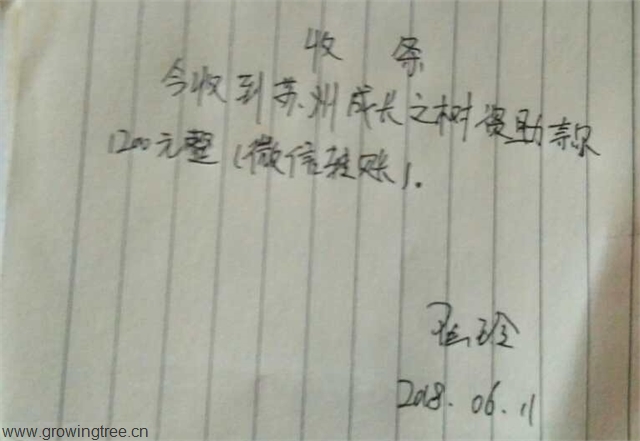 收 条
今收到苏州成长之树资助款
1200元整（微信转账）.
玲
2018.06.11
www.growingtree.cn